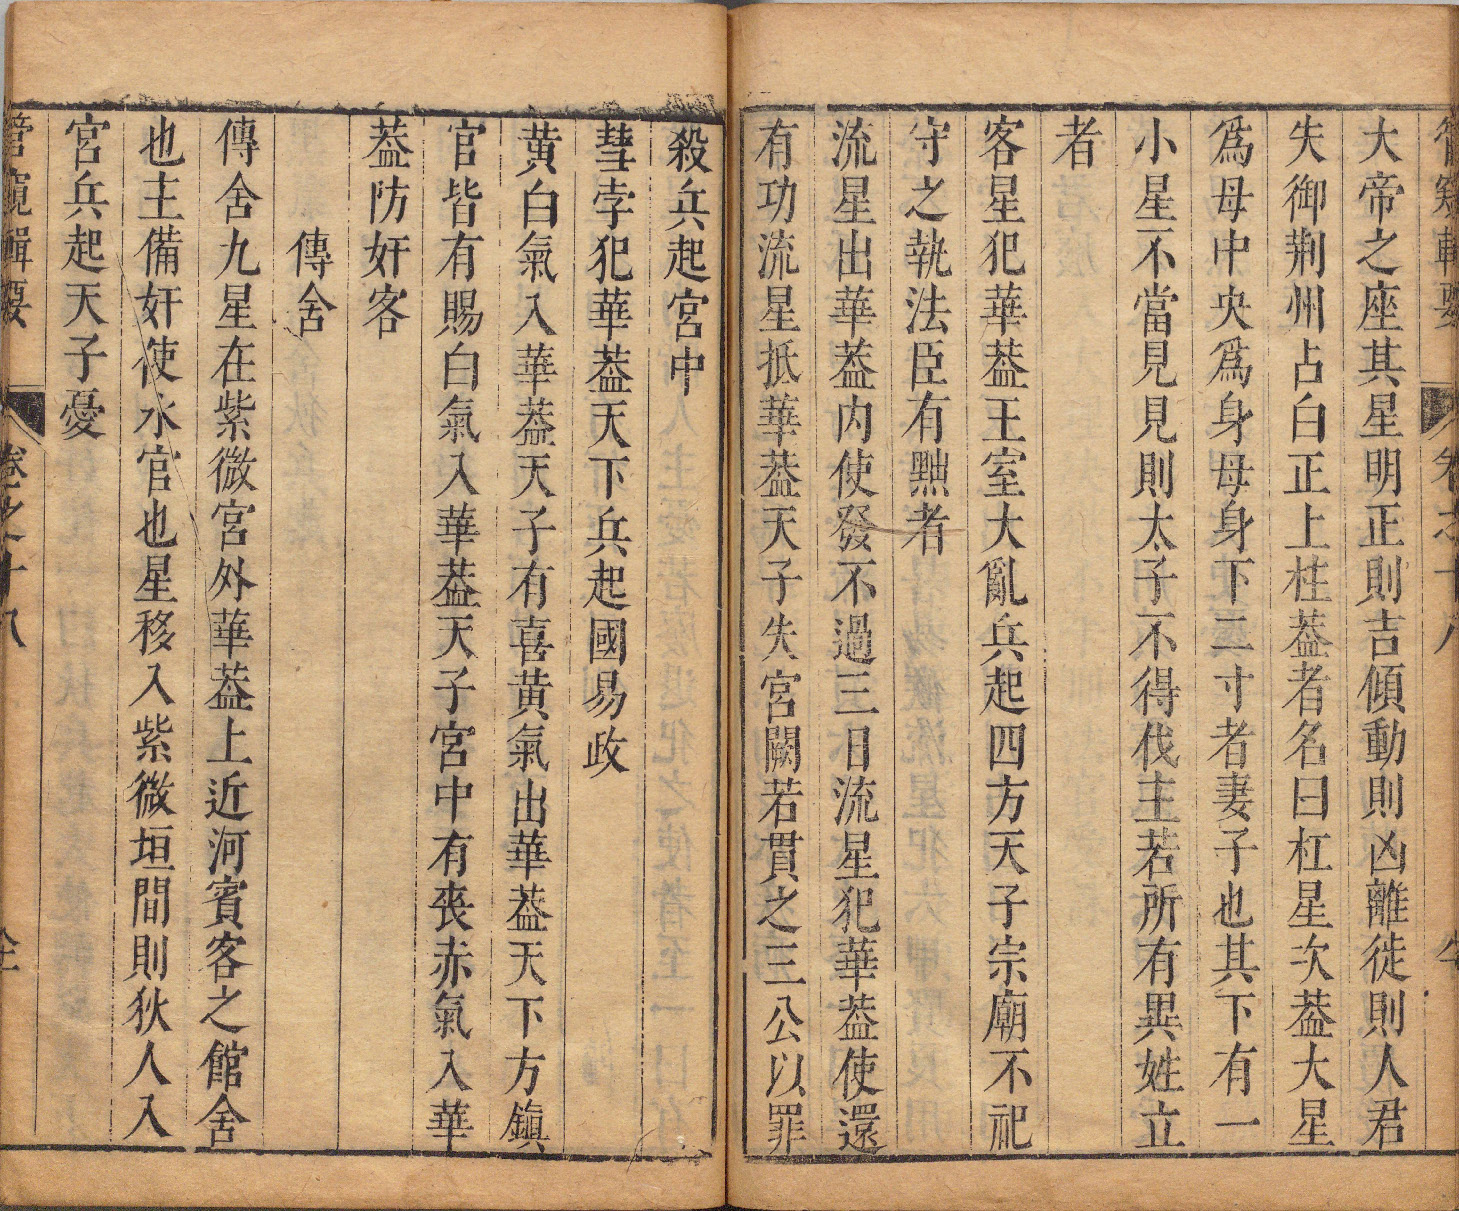 管窺輯要
卷之十八
大帝之座其星明正則吉傾動則凶離徙則人君
失御荆州占白正上柱葢者名曰杠星次葢大星
爲母中央爲身母身下二寸者妻子也其下有一
小星不當見見則太子不得伐主若所有異姓立
者
客星犯華葢王室大亂兵起四方天子宗廟不祀
守之執法臣有黜者
流星出華葢内使發不過三日流星犯華葢使還
有功流星抵華葢天子失宮闕若貫之三公以罪
殺兵起宮中
彗孛犯華葢天下兵起國易政
黄白氣入華葢天子有喜黄氣出華葢天下方鎭
官皆有賜白氣入華葢天子宮中有喪赤氣入華
葢防奸客
傳舍
傳舍九星在紫微宮外華葢上近河賓客之館舍
也主備奸使水官也星移入紫微垣間則狄人入
宮兵起天子憂
管窺輯要
卷之十八